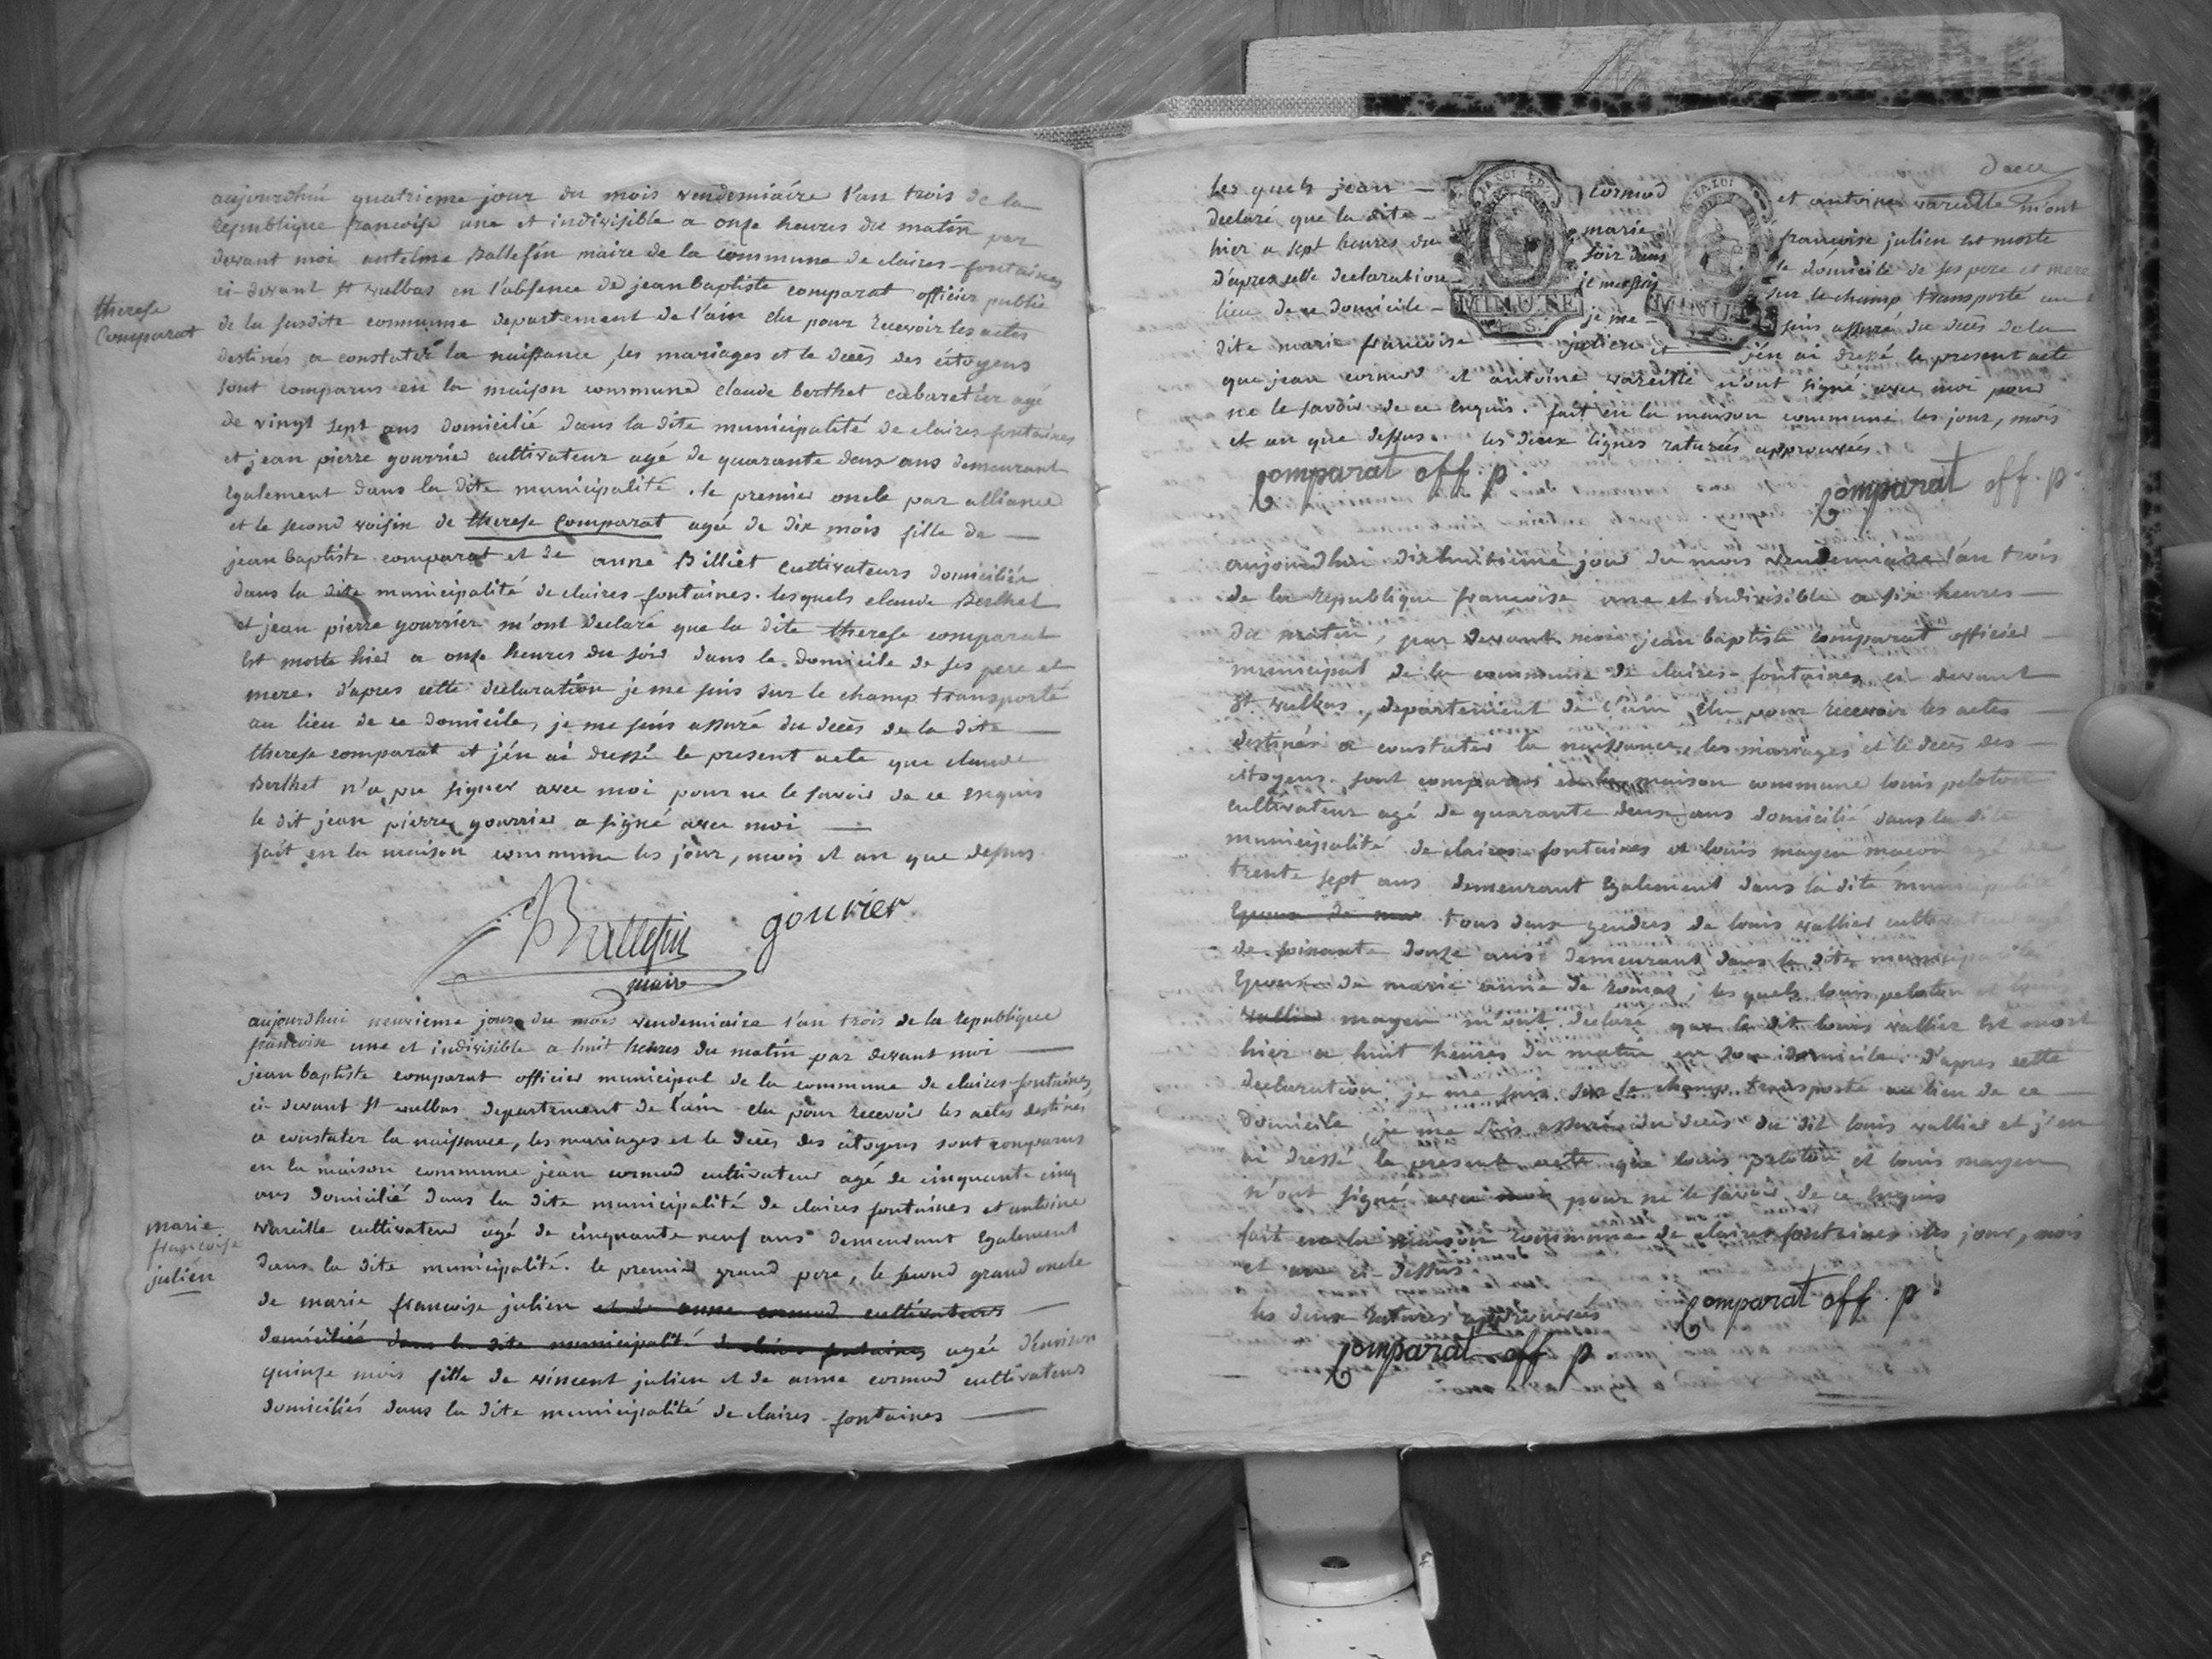 aujourdhui quatrieme jour du mois vendemiaire l'an trois de la
Republique francoise une et indivisible a onze heures du matin par
devant moi antelme Ballefin maire de la commune de claires-fontaines
ci-devant st vulbas en l'absence de jean baptiste comparat officier public
therese
Comparat
de la susdite commune departement de l'ain elu pour recevoir les actes
destinés a constater la naissance, les mariages et le decès des citoyens
sont comparus en la maison commune claude berthet cabaretier agé
de vingt sept ans domicilié dans la dite municipalité de claires-fontaines
et jean pierre gourrier cultivateur agé de quarante deux ans demeurant
Egalement dans la dite municipalité. le premier oncle par alliance
et le second voisin de therese Comparat agée de dix mois fille de
jean baptiste comparat et de anne Billiet Cultivateurs domiciliés
dans la dite municipalité de claires-fontaines. lesquels claude Berthet
et jean pierre gourrier m'ont declaré que la dite therese comparat
Est morte hier a onze heures du soir dans le domicile de ses pere et
mere. d'apres cette declaration je me suis sur le champ transporté
au lieu de ce domicile, je me suis assuré du decès de la dite
therese comparat et j'en ai dressé le present acte que claude
Berthet n'a pu signer avec moi pour ne le savoir de ce enquis
le dit jean pierre gourrier a signé avec moi
fait en la maison commune les jour, mois et an que dessus
Ballefin gourier
maire
aujourdhui neuvieme jour du mois vendemiaire l'an trois de la Republique
francoise une et indivisible a huit heures du matin par devant moi
jean baptiste comparat officier municipal de la commune de claires-fontaines
ci-devant st vulbas departement de l'ain elu pour recevoir les actes destinés
a constater la naissance, les mariages et le decès des citoyens sont comparus
en la maison commune jean cornud cultivateur agé de cinquante cinq
ans domicilié dans la dite municipalité de claires fontaines et antoine
marie
francoise
julien
vareille cultivateur agé de cinquante neuf ans demeurant Egalement
dans la dite municipalité. le premier grand pere, le second grand oncle
de marie francoise julien et de anne cornud cultivateurs
domiciliés dans la dite municipalité de claires fontaines agée d'environ
quinze mois fille de vincent julien et de anne cornud cultivateurs
domiciliés dans la dite municipalité de claires-fontaines
Les quels jean cornud et antoine vareille m'ont
declaré que la dite marie francoise julien est morte
hier a sept heures du soir dans le domicile de ses pere et mere
d'apres cette declaration je me suis sur le champ transporté au
lieu de ce domicile je me suis assuré du decès de la
MINUTE
dite marie francoise julien et j'en ai dressé le present acte
que jean cornud et antoine vareille n'ont signé avec moi pour
ne le savoir de ce enquis. fait en la maison commune les jour, mois
et an que dessus. les deux lignes raturées approuvées
Comparat off. p. Comparat off. p.
aujourdhui dixhuitieme jour du mois vendemiaire l'an trois
de la Republique francoise une et indivisible a six heures
du matin, par devant moi jean baptiste comparat officier
municipal de la commune de claires-fontaines ci-devant
st vulbas, departement de l'ain Elu pour recevoir les actes
destinés a constater la naissance, les mariages et le decès des
citoyens. sont comparus en la maison commune louis peloton
cultivateur agé de quarante deux ans domicilié dans la dite
municipalité de claires-fontaines et louis mayen macon
trente sept ans demeurant Egalement dans la dite municipalité
tous deux gendres de louis vallier
de soixante douze ans demeurant dans la dite municipalité
Epoux de marie anne de romas, les quels louis peloton et louis
vallier mayen m'ont declaré que le dit louis vallier est mort
hier a huit heures du matin en son domicile. d'apres cette
declaration, je me suis sur le champ transporté au lieu de ce
domicile, je me suis assuré du decès du dit louis vallier et j'en
ai dressé le present acte que louis peloton et louis mayen
n'ont signé avec moi pour ne le savoir de ce enquis
fait en la maison commune de claires fontaines les jour, mois
et an ci-dessus.
les deux ratures approuvées Comparat off. p.
Comparat off p